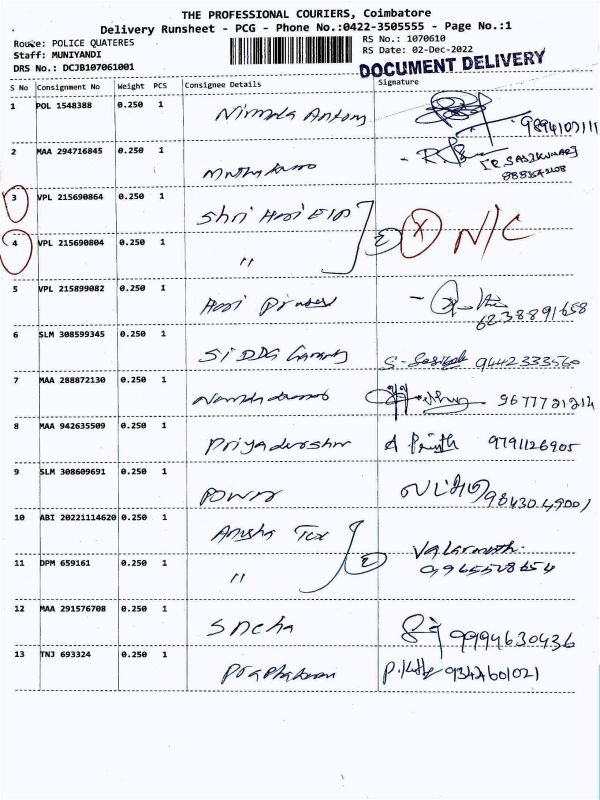 THE PROFESSIONAL COURIERS, Coimbatore
Delivery Runsheet - PCG - Phone No.:0422-3505555 - Page No.:1
Route: POLICE QUATERES
RS No.: 1070610
Staff: MUNIYANDI
RS Date: 02-Dec-2022
DRS No.: DCJB107061001
DOCUMENT DELIVERY
S No Consignment No Weight PCS Consignee Details Signature
1 POL 1548388 0.250 1 Nirmala Antony
2 MAA 294716845 0.250 1
[R. SASIKUMAR]
3 VPL 215690864 0.250 1 Shri Hari (2) (X) N/C
4 VPL 215690804 0.250 1 "
5 VPL 215899082 0.250 1 Hari
6238891658
6 SLM 308599345 0.250 1 9442333560
7 MAA 288872130 0.250 1 9677721214
8 MAA 942635509 0.250 1 Priyadarshini 9791126905
9 SLM 308609691 0.250 1 Power 9843049001
10 ABI 20221114620 0.250 1 Anusha Tex (2) Valarmathi
11 DPM 659161 0.250 1 "
12 MAA 291576708 0.250 1 Sneha 9994630436
13 TNJ 693324 0.250 1 9342601021